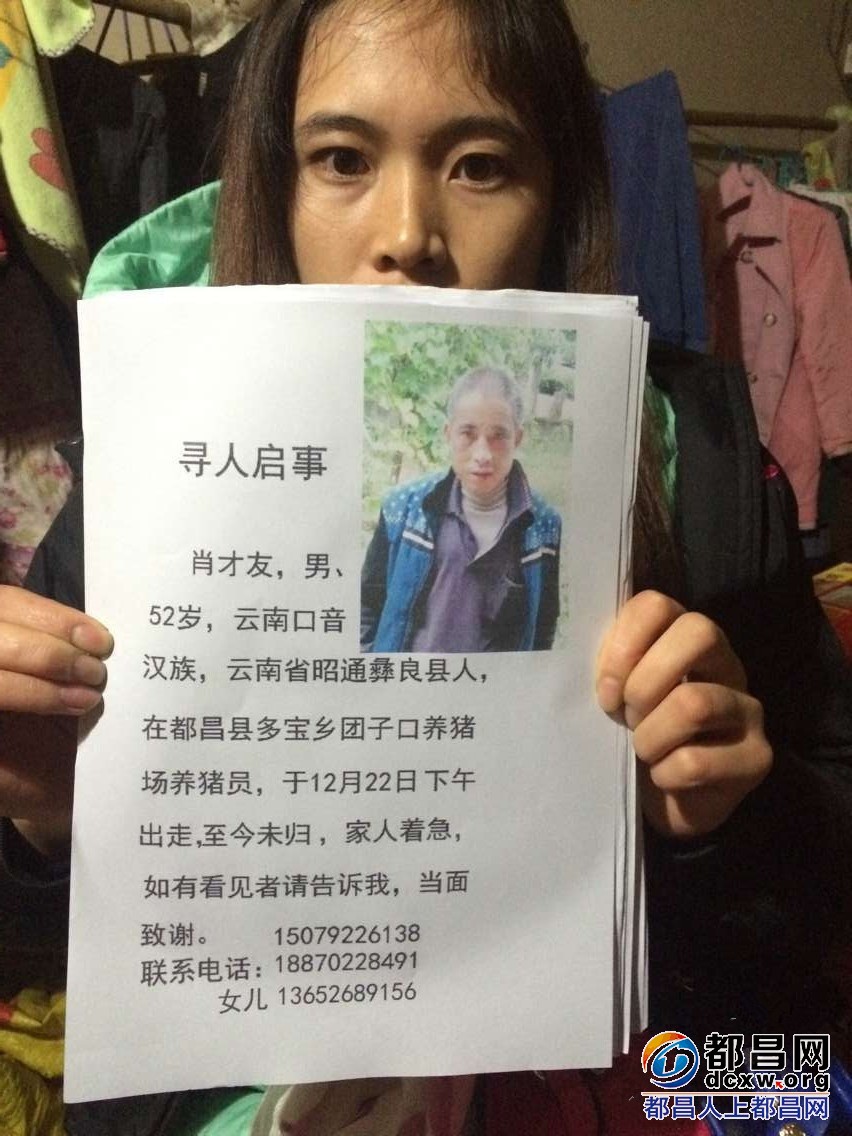 寻人启事
肖才友，男、
52岁，云南口音
汉族，云南省昭通彝良县人，
在都昌县多宝乡团子口养猪
场养猪员，于12月22日下午
出走,至今未归，家人着急，
如有看见者请告诉我，当面
致谢。 15079226138
联系电话：18870228491
女儿 13652689156
都昌网
dcxw.org
都昌人上都昌网